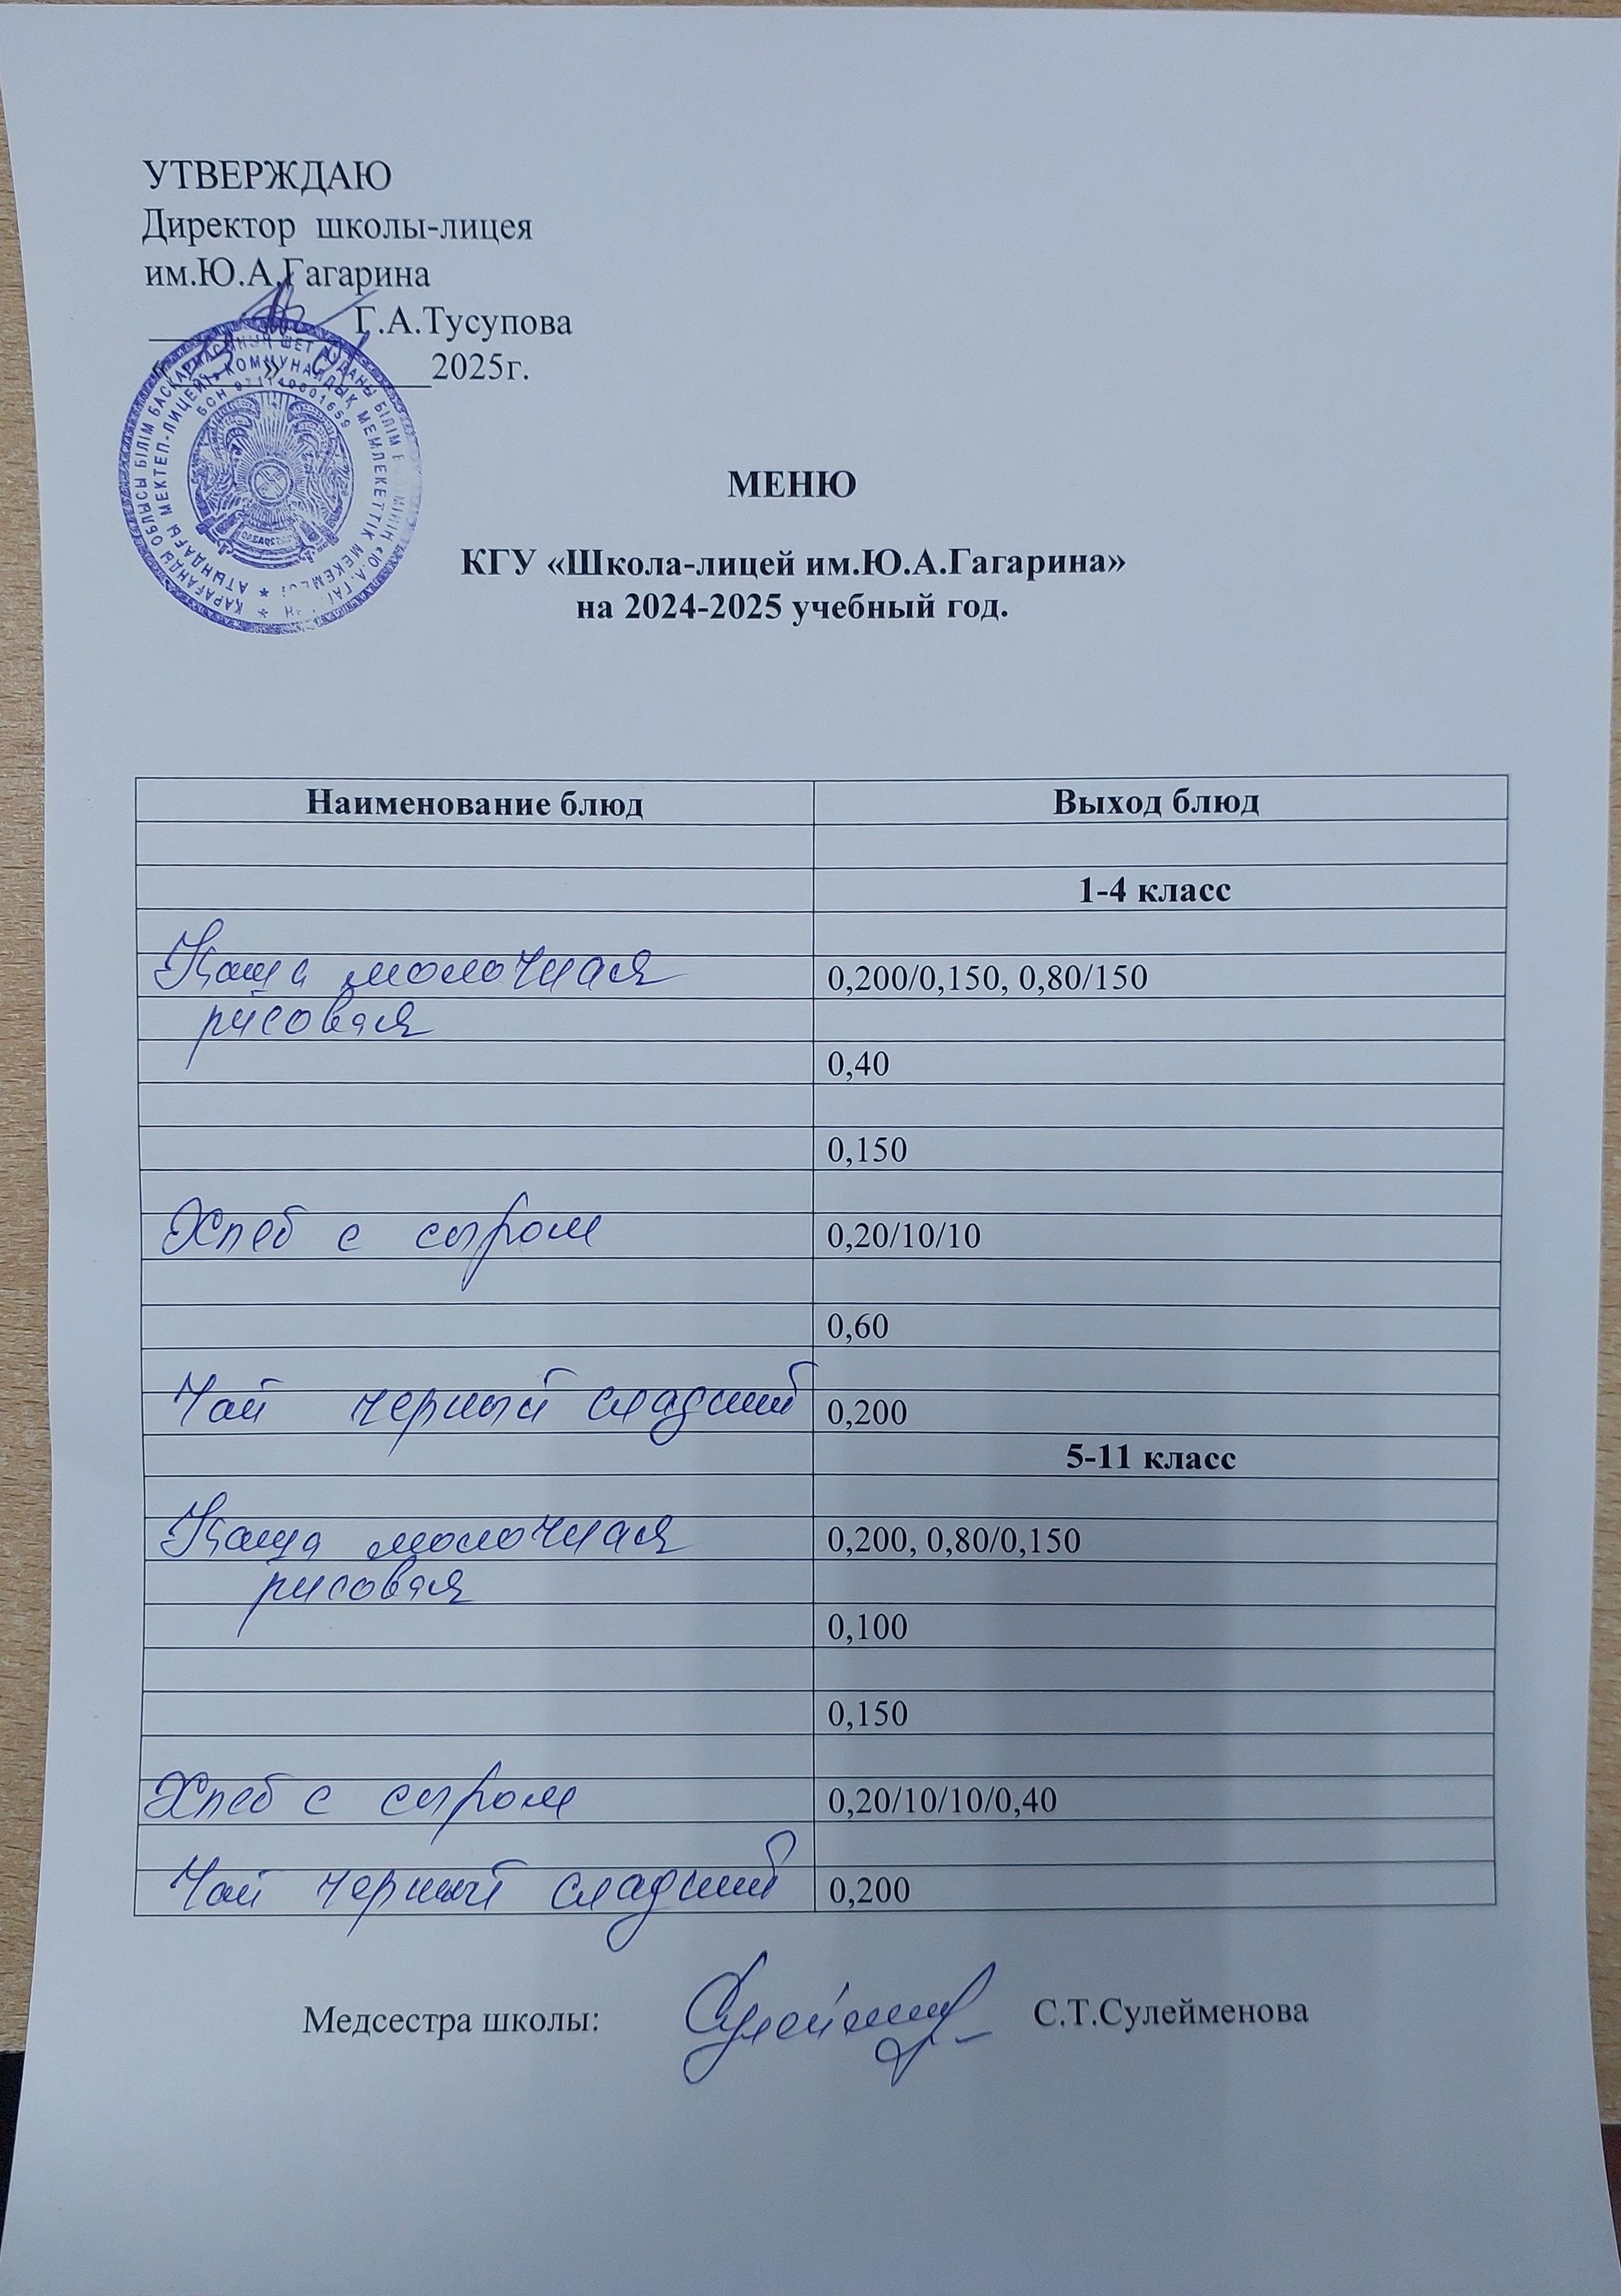 УТВЕРЖДАЮ
Директор школы-лицея
им.Ю.А.Гагарина
Г.А.Тусупова
2025г.
БСН 971140001659
МЕНЮ
КГУ «Школа-лицей им.Ю.А.Гагарина»
на 2024-2025 учебный год.
Наименование блюд Выход блюд
1-4 класс
Каша молочная 0,200/0,150, 0,80/150
рисовая
0,40
0,150
Хлеб с сыром 0,20/10/10
0,60
Чай черный сладкий 0,200
5-11 класс
Каша молочная 0,200, 0,80/0,150
рисовая
0,100
0,150
Хлеб с сыром 0,20/10/10/0,40
Чай черный сладкий 0,200
Медсестра школы: С.Т.Сулейменова